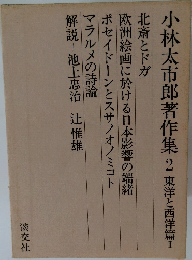 小林太市郎著作集 2 東洋と西洋篇 I
北斎とドガ
欧洲絵画に於ける日本影響の端緒
ポセイドーンとスサノオノミコト
マラルメの詩論
解説＝池上忠治 辻惟雄
淡交社